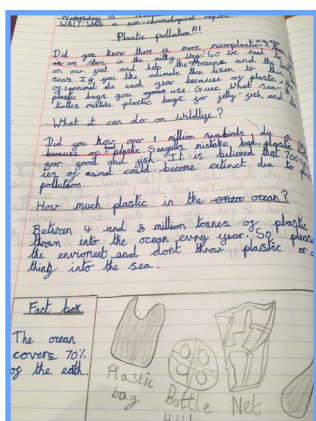 Wednesday 10
WALT: Write a non-chronological report
Plastic pollution!!!
Did you know there is more microplastic in the sea
as are stars in the milky way. So we need to
on our feet and help the oceans and the
seas. If you like animals then lisen to this
of of animal die each year because of plastic
plastic bags you use. Gue what sea
tutles mistake plastic bags for jelly-fish and
What it can do on wildlife?
Did you know over 1 million seabirds die a
because of plastic. Seagulls mistake bad plastic
for good and fish. It is believed that 700
ies of animal could become extinct due to
pollution...
How much plastic in the ocean?
Between 4 and 8 million tonnes of plastic
thrown into the ocean evry year. So please
the enviroment and dont throw plastic or
thing into the sea.
Fact box
The ocean
covers 70%
of the eath.
Plastic
bag
Bottle
Net